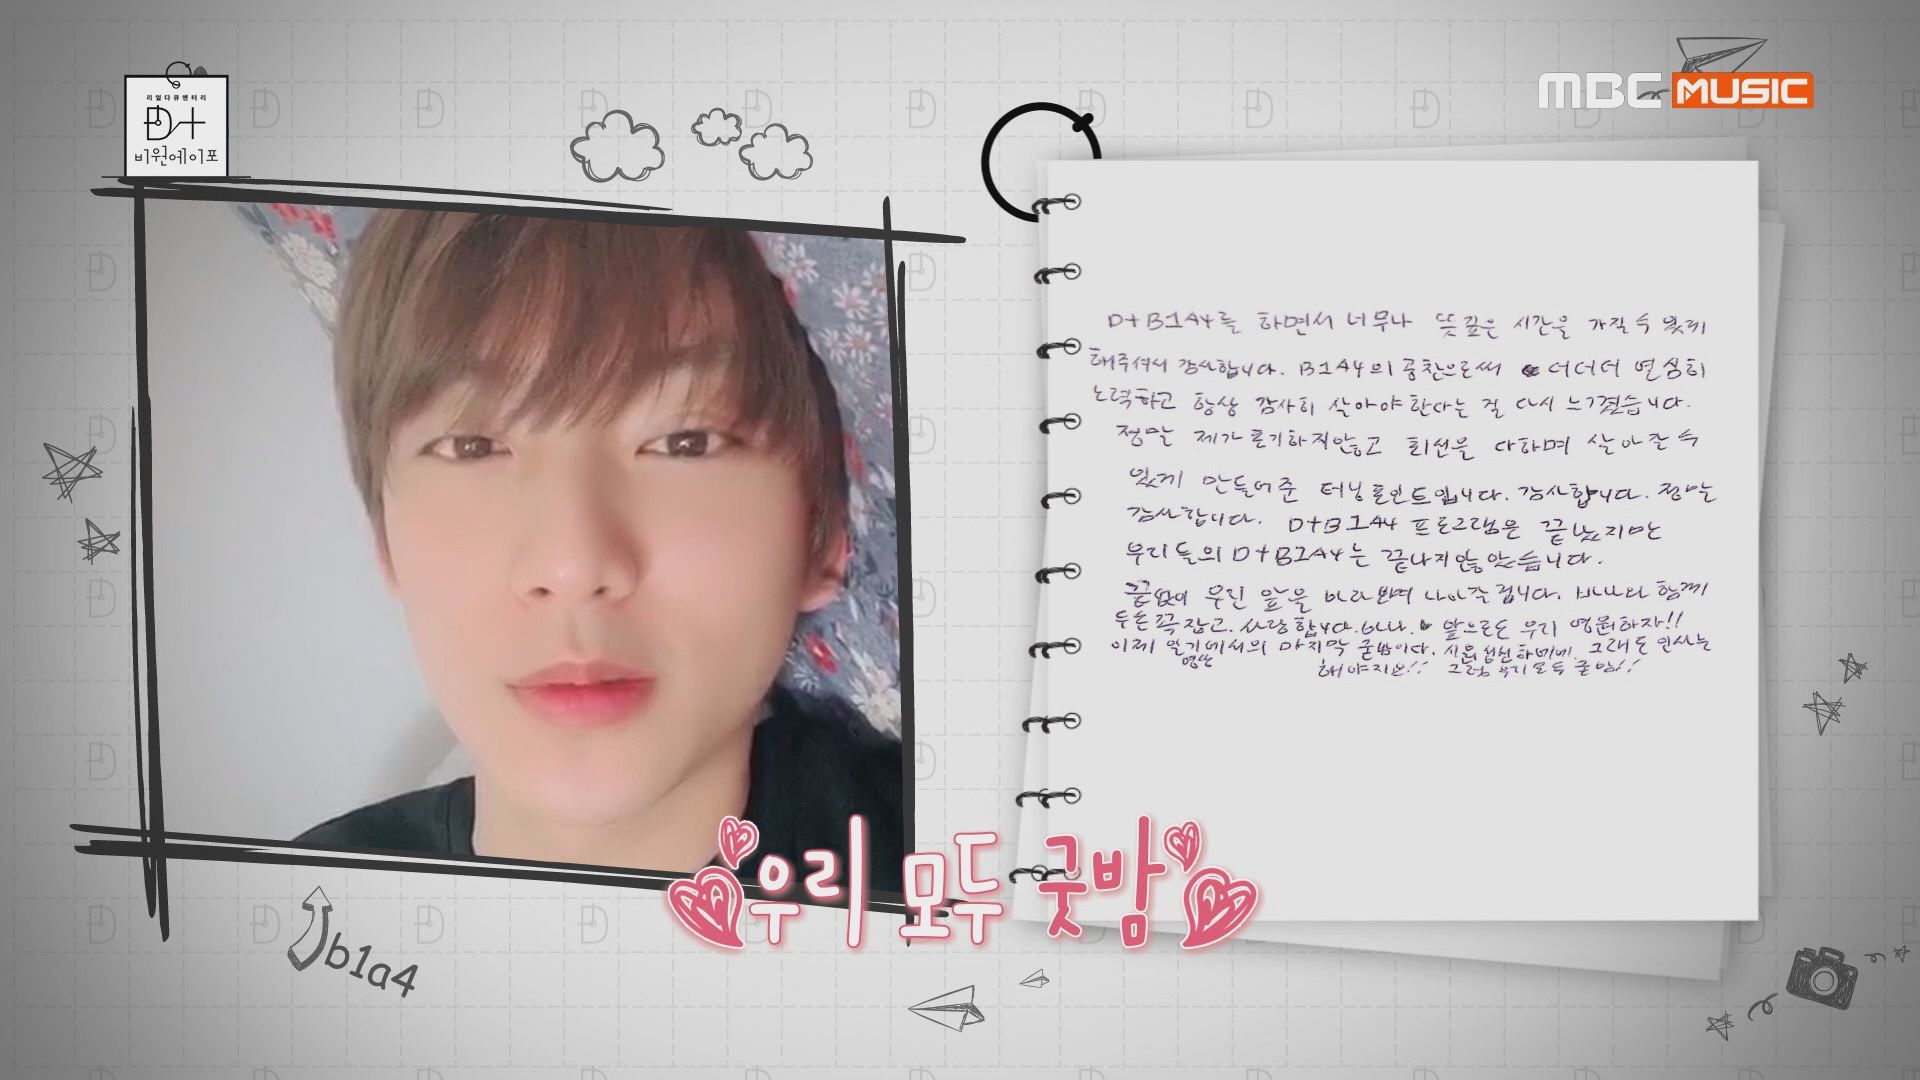 리얼다큐멘터리
D+
비원에이포
MBC MUSIC
D+B1A4를 하면서 너무나 뜻깊은 시간을 가질 수 있게
해주셔서 감사합니다. B1A4의 공찬으로써 더더더 열심히
노력하고 항상 감사히 살아야 한다는 걸 다시 느꼈습니다.
정말 제가 포기하지않고 최선을 다하며 살아갈 수
있게 만들어준 터닝포인트입니다. 감사합니다. 정말
감사합니다. D+B1A4 프로그램은 끝났지만
우리들의 D+B1A4는 끝나지않았습니다.
끝없이 우린 앞을 바라보며 나아갈 겁니다. 바나와 함께
두손 꼭 잡고. 사랑합니다.바나. 앞으로도 우리 영원하자!!
이제 일기에서의 마지막 굳밤이다. 시원섭섭하네네. 그래도 인사는
해야지요!! 그럼 우리 모두 굳밤!!
우리 모두 굿밤
b1a4